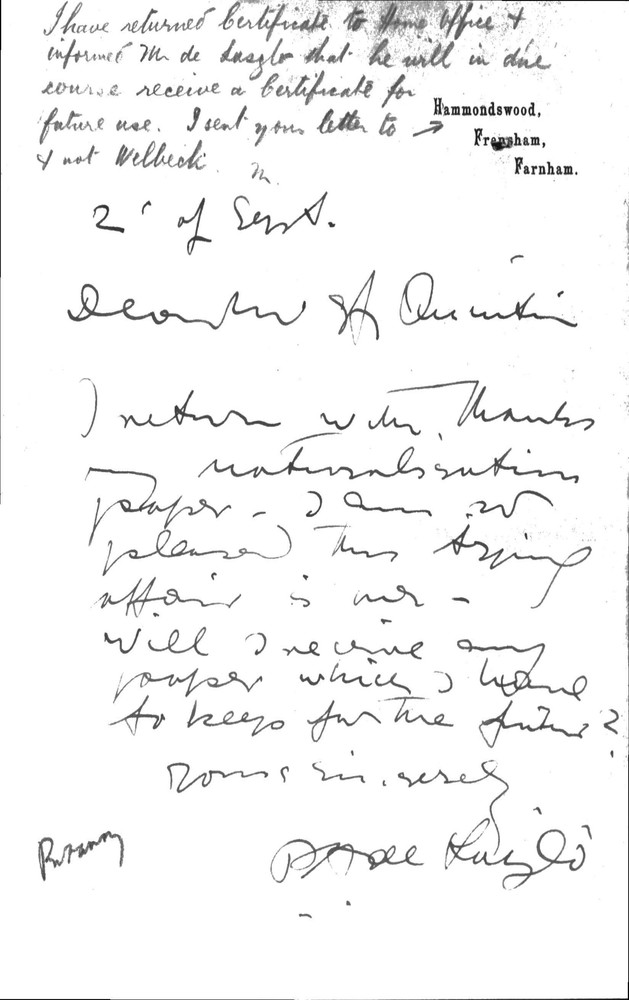 I have returned Certificate to Home Office &
informed Mr de Laszlo that he will in due
course receive a Certificate for
future use. I sent your letter to →
& not Welbeck.
Hammondswood,
Frensham,
Farnham.
2' of Sept.
Dear Mr St Quintin
I return with thanks
my naturalisation
paper - I am so
pleased this trying
affair is over -
Will I receive any
paper which I have
to keep for the future?
Yours sincerely
P A de László